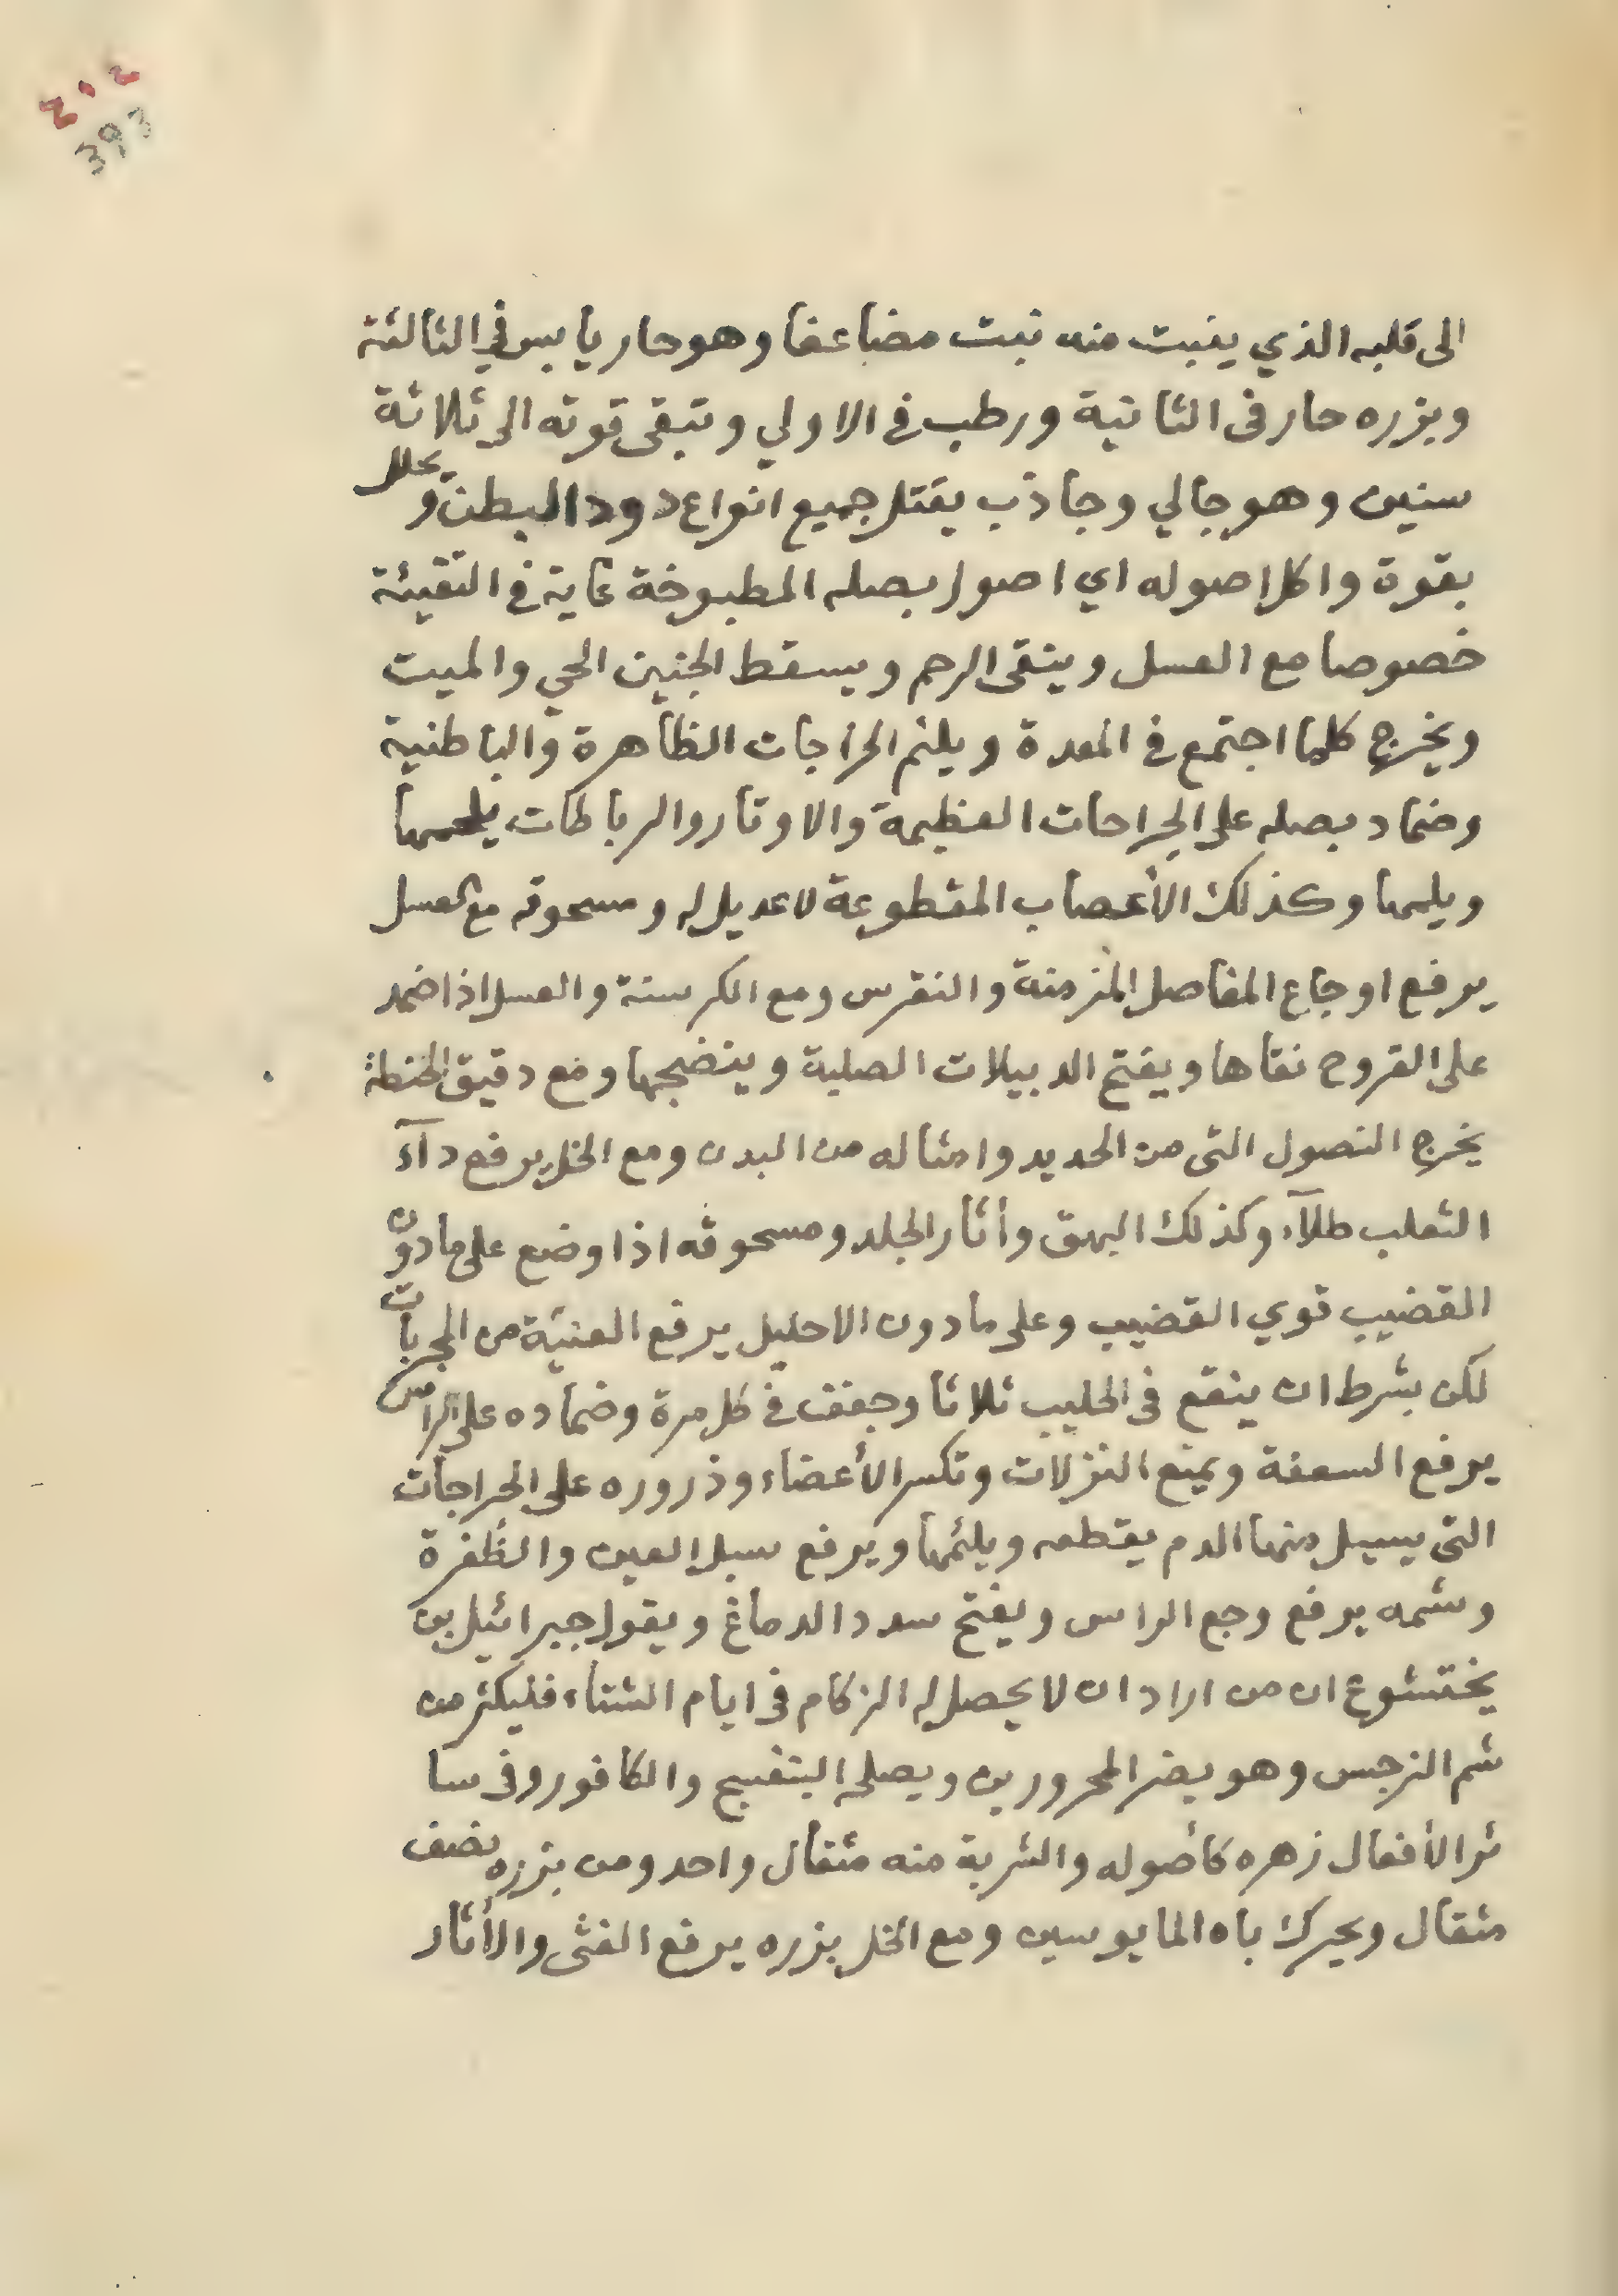 ٤٠٢
393
الى قلبه الذي ينبت منه نبت مضاعفا وهو حار يابس في الثالثة
وبزره حار في الثانية ورطب في الاولي وتبقى قوته الى ثلاثة
سنين وهو جالي وجاذب يقتل جميع انواع دود البطن و يحلل
بقوة واكل اصوله اي اصول بصله المطبوخة غاية في التقيئة
خصوصا مع العسل وينقى الرحم ويسقط الجنين الحي والميت
ويخرج كلما اجتمع في المعدة ويلئم الخراجات الظاهرة والباطنية
وضماد بصله على الجراحات العظيمة والاوتار والرباطات يلحمها
ويلمها وكذلك الأعصاب المقطوعة لا عديل له ومسحوقه مع العسل
يرفع اوجاع المفاصل المزمنة والنقرس ومع الكرسنة والعسل اذا ضمد
على القروح نقاها ويفتح الدبيلات الصلبة وينضجها ومع دقيق الحنطة
يخرج النصول التى من الحديد وامثاله من البدن ومع الخل يرفع دآء
الثعلب طلآء وكذلك البهق وأثار الجلد ومسحوقه اذا وضع على ما دون
القضيب قوي القضيب وعلى ما دون الاحليل يرفع العنيّة من المجربات
لكن بشرط ان ينقع في الحليب ثلاثا وجفف في كل مرة وضماده على الراس
يرفع السعفة ويمنع النزلات وتكسر الأعضاء وذروره على الجراحات
التى يسيل منها الدم يقطعه ويلئمها ويرفع سبل العين والظفرة
وشمه يرفع وجع الراس ويفتح سدد الدماغ ويقول جبرائيل بن
بختشوع ان من اراد ان لا يحصل له الزكام في ايام الشتاء فليكثر من
شم النرجس وهو يضر المحرورين ويصلحه البنفسج والكافور وفى سا
ئر الأفعال زهره كأصوله والشربة منه مثقال واحد ومن بزره نصف
مثقال ويحرك باه المايوسين ومع الخل بزره يرفع الغثى والأثار